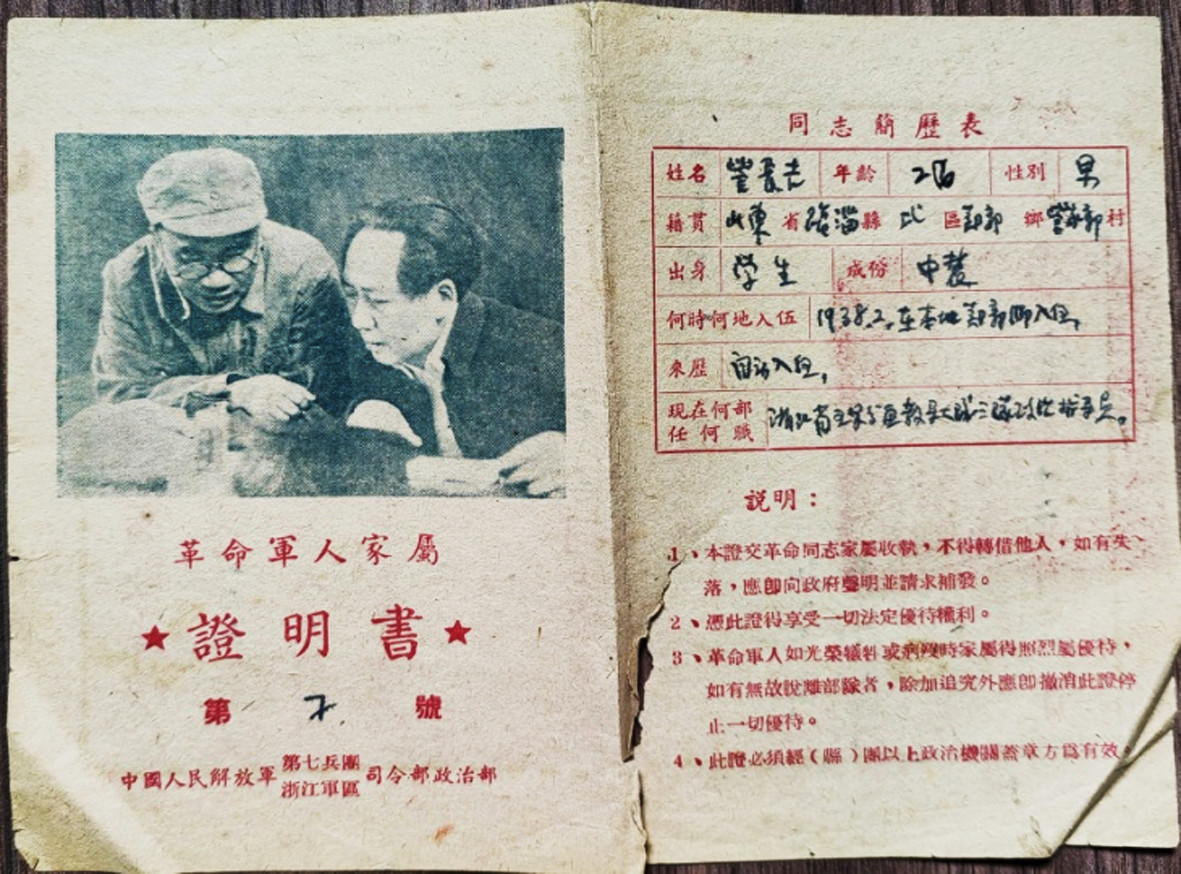 革命軍人家屬
★證明書★
第 七 號
中國人民解放軍 第七兵團 浙江軍區 司令部政治部
同志簡歷表
姓名 年齡 性別 男
籍貫 山東 省 臨淄 縣 區 鄉 村
出身 学生 成份 中農
何時何地入伍 1938.2.在本地
來歷 自动入伍,
現在何部
任何職
說明：
1、本證交革命同志家屬收執，不得轉借他人，如有失
落，應卽向政府聲明並請求補發。
2、憑此證得享受一切法定優待權利。
3、革命軍人如光榮犧牲或病歿時家屬得照烈屬優待，
如有無故脫離部隊者，除加追究外應卽撤消此證停
止一切優待。
4、此證必須經（縣）團以上政治機關蓋章方爲有效。